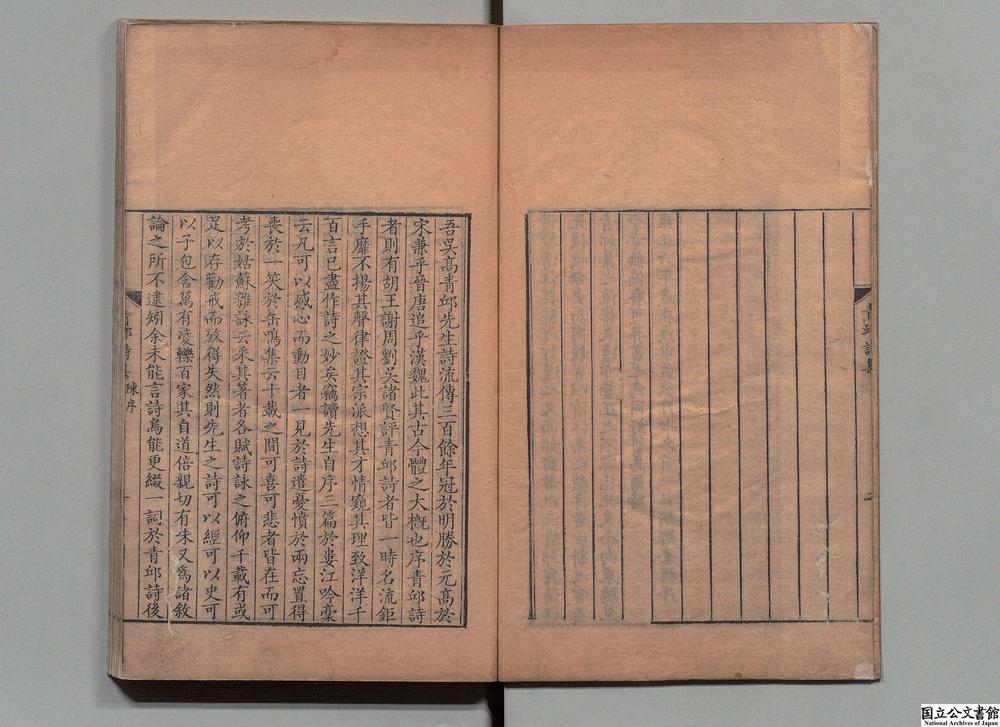 青邱詩集
吾吳高青邱先生詩流傳三百餘年冠於明勝於元高於
宋兼乎晉唐追乎漢魏此其古今體之大槪也序青邱詩
者則有胡王謝周劉吳諸賢評青邱詩者皆一時名流鉅
手靡不揚其聲律證其宗派想其才情窺其理致洋洋千
百言已盡作詩之妙矣竊讀先生自序三篇於婁江吟稾
云凡可以感心而動目者一見於詩遣憂憤於兩忘置得
喪於一笑於缶鳴集云十載之間可喜可悲者皆在而可
考於姑蘇雜詠云采其著者各賦詩詠之俯仰千載有或
足以存勸戒而攷得失然則先生之詩可以經可以史可
以子包含萬有淩轢百家其自道倍親切有朱又爲諸敘
論之所不逮矧余未能言詩烏能更綴一詞於青邱詩後
青邱詩集 陳序 一
国立公文書館
National Archives of Japan